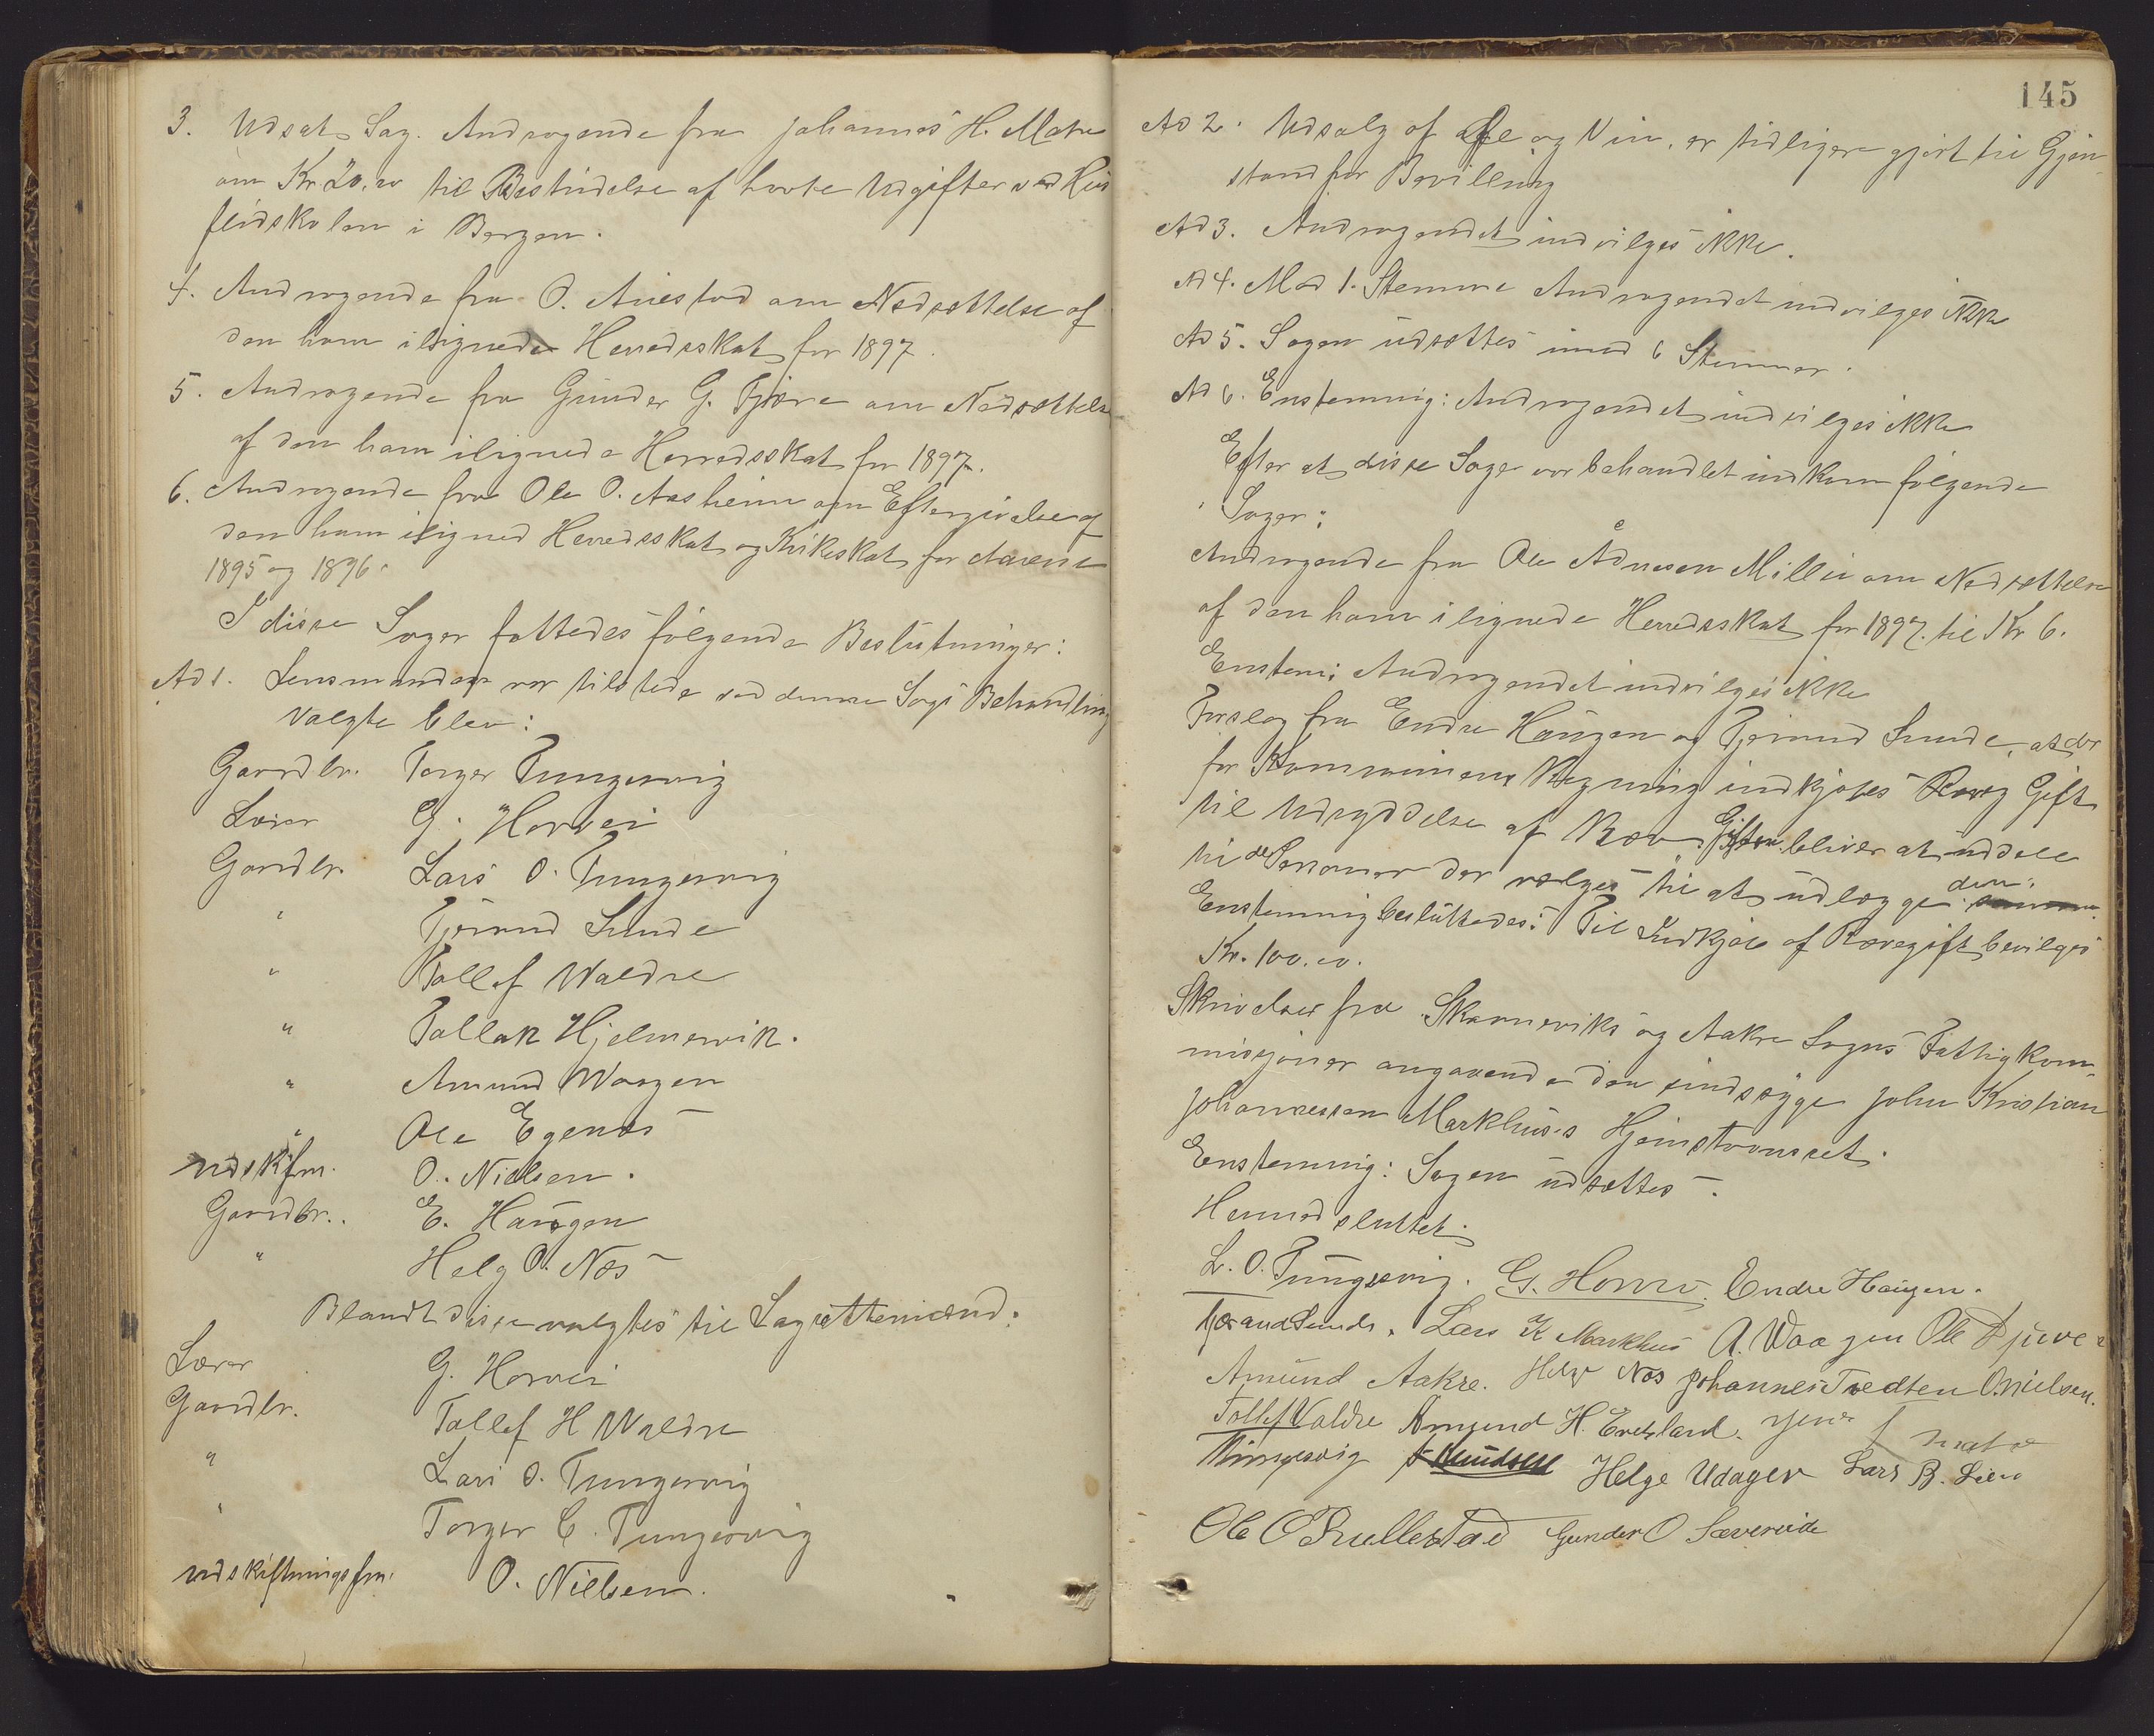 3. Udsat Sag. Andragende fra Johannes H. Matre
om Kr. 20.00 til Bestridelse af havte Udgifter ved Hus
flidskolen i Bergen.
4. Andragende fra O. Auestad om Nedsættelse af
den ham ilignede Herredsskat for 1897.
5. Andragende fra Gunder G. Tjære om Nedsættelse
af den ham ilignede Herredsskat for 1897.
6. Andragende fra Ole O. Aasheim om Eftergivelse af
den ham iligned Herredsskat og Kirkeskat for Aarene
1895 og 1896.
I disse Sager fattedes følgende Beslutninger:
Ad 1. Lensmanden var tilstede ved denne Sags Behandling
Valgte blev:
Gaardbr. Torger Tungesvig
Lærer G. Horvei
Gaardbr. Lars O. Tungesvig
" Tjerand Sunde
" Tollef Waldre
" Tollak Hjelmervik.
" Amund Waagen
" Ole Egenæs
Udskifm. O. Nielsen.
Gaardbr.. E. Haugen
" Helg O. Næs
Blandt disse valgtes til Lagrettemænd:
Lærer G. Horvei
Gaardbr. Tollef H Waldre
" Lars O. Tungesvig
" Torger C. Tungesvig
Udskiftningsfm. O. Nielsen.
145
Ad 2. Udsalg af Øl og Vin, er tidligere gjort til Gjen-
stand for Bevilling
Ad 3. Andragendet indvilges ikke.
Ad 4. Mod 1. Stemme Andragendet indvilges ikke
Ad 5. Sagen udsættes imod 6 Stemmer.
Ad 6. Enstemmig: Andragendet indvilges ikke
Efter at disse Sager var behandlet indkom følgende
Sager:
Andragende fra Ole Ådnesen Millie om Nedsættelse
af den ham ilignede Herredsskat for 1897. til Kr 6.
Enstem: Andragendet indvilges ikke
Forslag fra Endre Haugen og Tjerand Sunde, at der
for Kommunens Regning indkjøbes Ræv Gift
til Udryddelse af Ræv. Giften bliver at uddele
til de Personer der vælges til at udlægge den.
Enstemmig besluttedes: Til Indkjøb af Rævegift bevilges
Kr. 100.00.
Skrivelser fra Skaaneviks og Aakre Sogns Fattigkom-
misjoner angaaende den sindssyge John Kristian
Johannessen Markhus's Hjemstavnsret.
Enstemmig: Sagen udsættes.
Hermed sluttet.
L. O. Tungesvig. G. Horvei. Endre Haugen.
Tjerand Sunde. Lars K Markhus A. Waagen Ole Djuve
Amund Aakre. Helg Næs Johannes Tvedten O. Nielsen.
Tollef Valdre Amund H. Eneland.
Helge Udager Lars B. Lien
Gunder O Sævereide